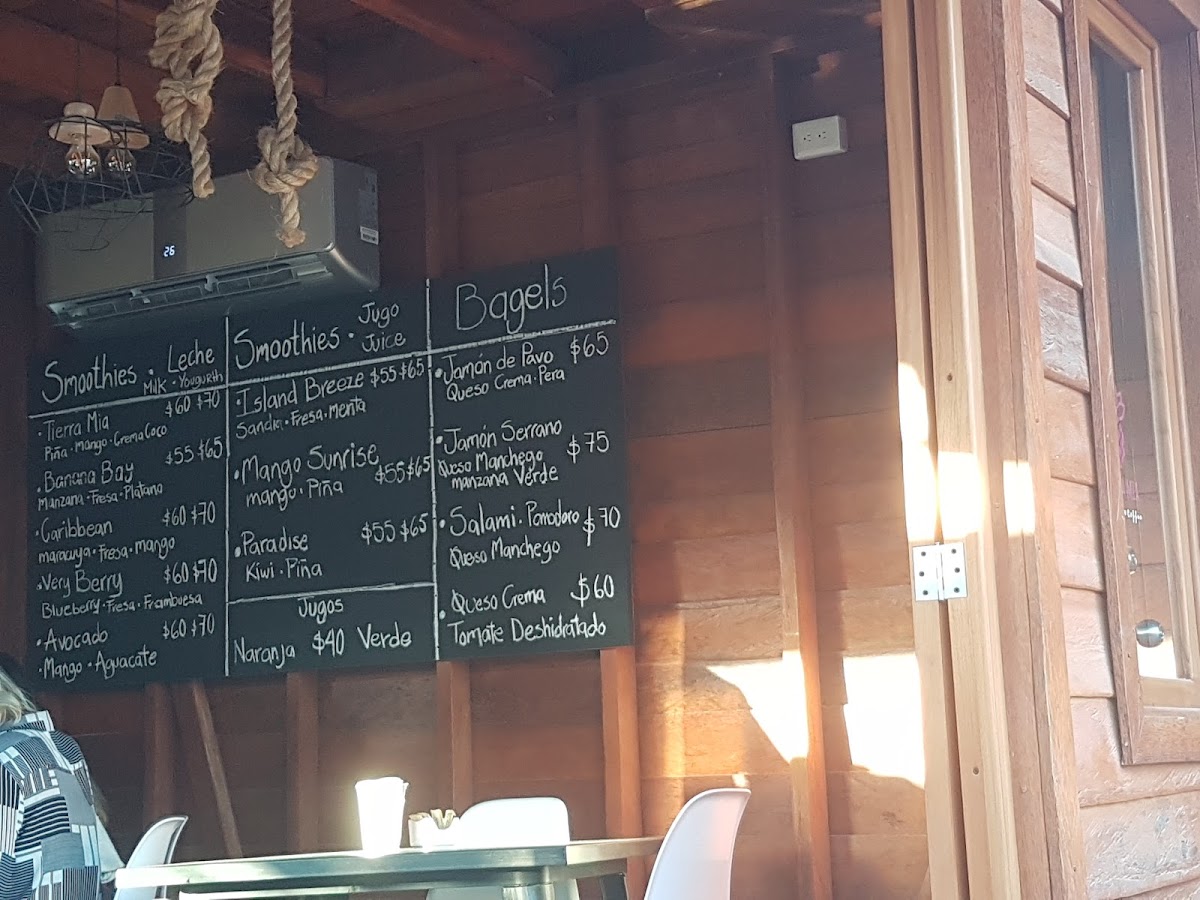 26
Smoothies · Leche
Milk · Yougurth
· Tierra Mia $60 $70
Piña · Mango · Crema Coco
· Banana Bay $55 $65
Manzana · Fresa · Platano
· Caribbean $60 $70
maracuya · Fresa · mango
· Very Berry $60 $70
Blueberry · Fresa · Frambuesa
· Avocado $60 $70
· Mango · Aguacate
Smoothies · Jugo
Juice
· Island Breeze $55 $65
Sandia · Fresa · Menta
· Mango Sunrise $55 $65
mango · Piña
· Paradise $55 $65
Kiwi · Piña
Jugos
Naranja $40 Verde
Bagels
· Jamón de Pavo $65
Queso Crema · Pera
· Jamón Serrano $75
Queso Manchego
manzana Verde
· Salami · Pomodoro $70
Queso Manchego
· Queso Crema $60
Tomate Deshidratado